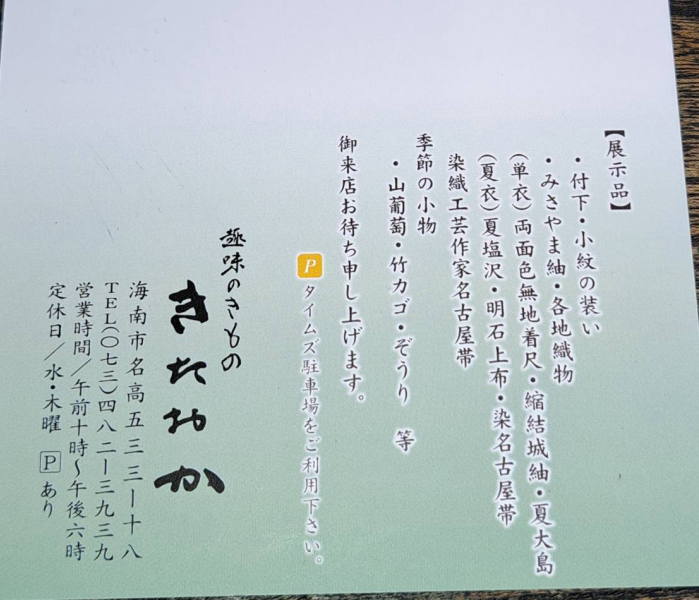 【展示品】
・付下・小紋の装い
・みさやま紬・各地織物
(単衣)両面色無地着尺・縮結城紬・夏大島
(夏衣)夏塩沢・明石上布・染名古屋帯
染織工芸作家名古屋帯
季節の小物
・山葡萄・竹カゴ・ぞうり 等
御来店お待ち申し上げます。
P タイムズ駐車場をご利用下さい。
趣味のきもの
きたおか
海南市名高五三三ー十八
TEL(〇七三)四八二ー三九三九
営業時間/午前十時~午後六時
定休日/水・木曜 P あり